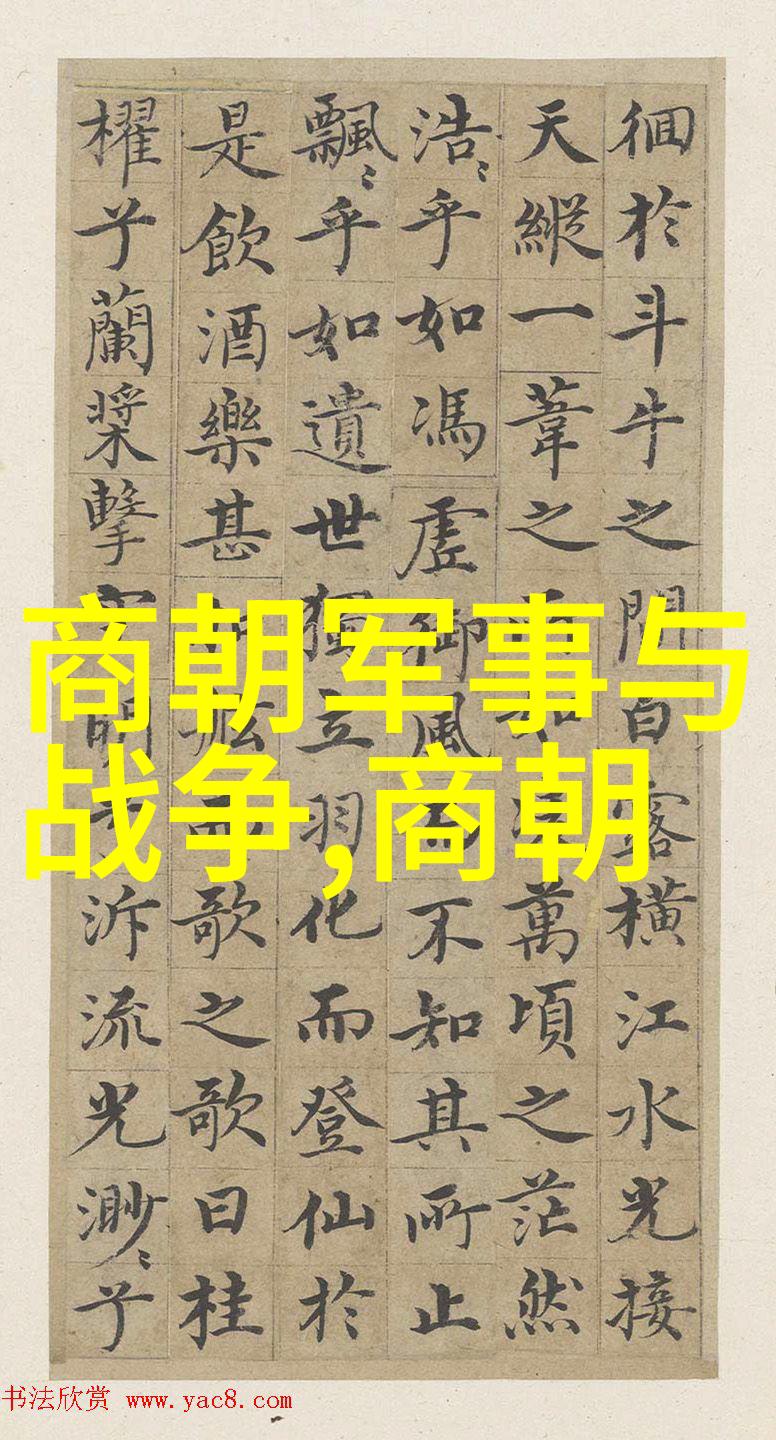 徊於斗牛之間白露橫江水光接
天縱一葦之所如凌萬頃之茫然
浩〻乎如馮虛御風而不知其所止
飄〻乎如遺世獨立羽化而登仙於
是飲酒樂甚扣舷而歌之歌曰桂
櫂兮蘭槳擊空明兮泝流光渺〻兮
商朝军事与
战争,商朝
书法欣赏 www.yac8.com